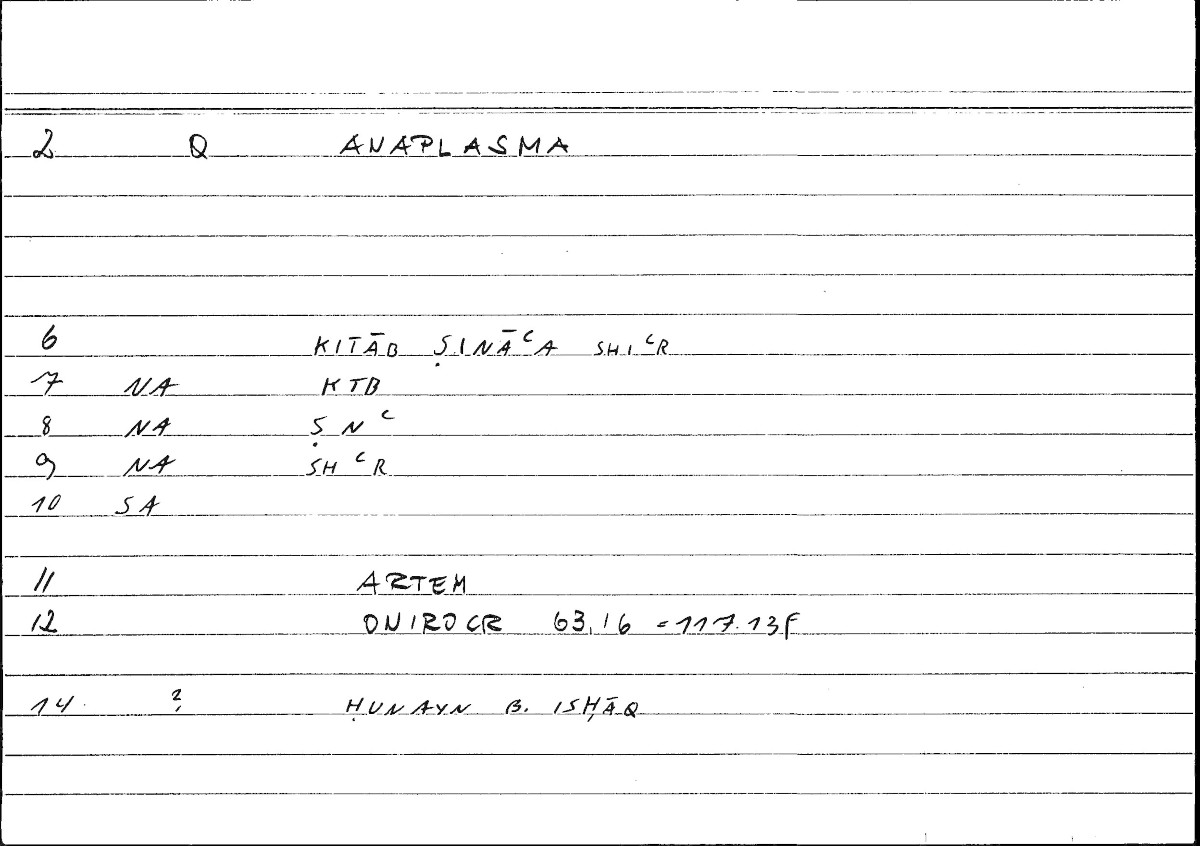 2 Q ANAPLASMA
6 KITĀB ṢINĀʿA SHIʿR
7 NA KTB
8 NA ṢNʿ
9 NA SHʿR
10 SA
11 ARTEM
12 ONIROCR 63,16 = 117.13F
14 ? ḤUNAYN B. ISḤĀQ